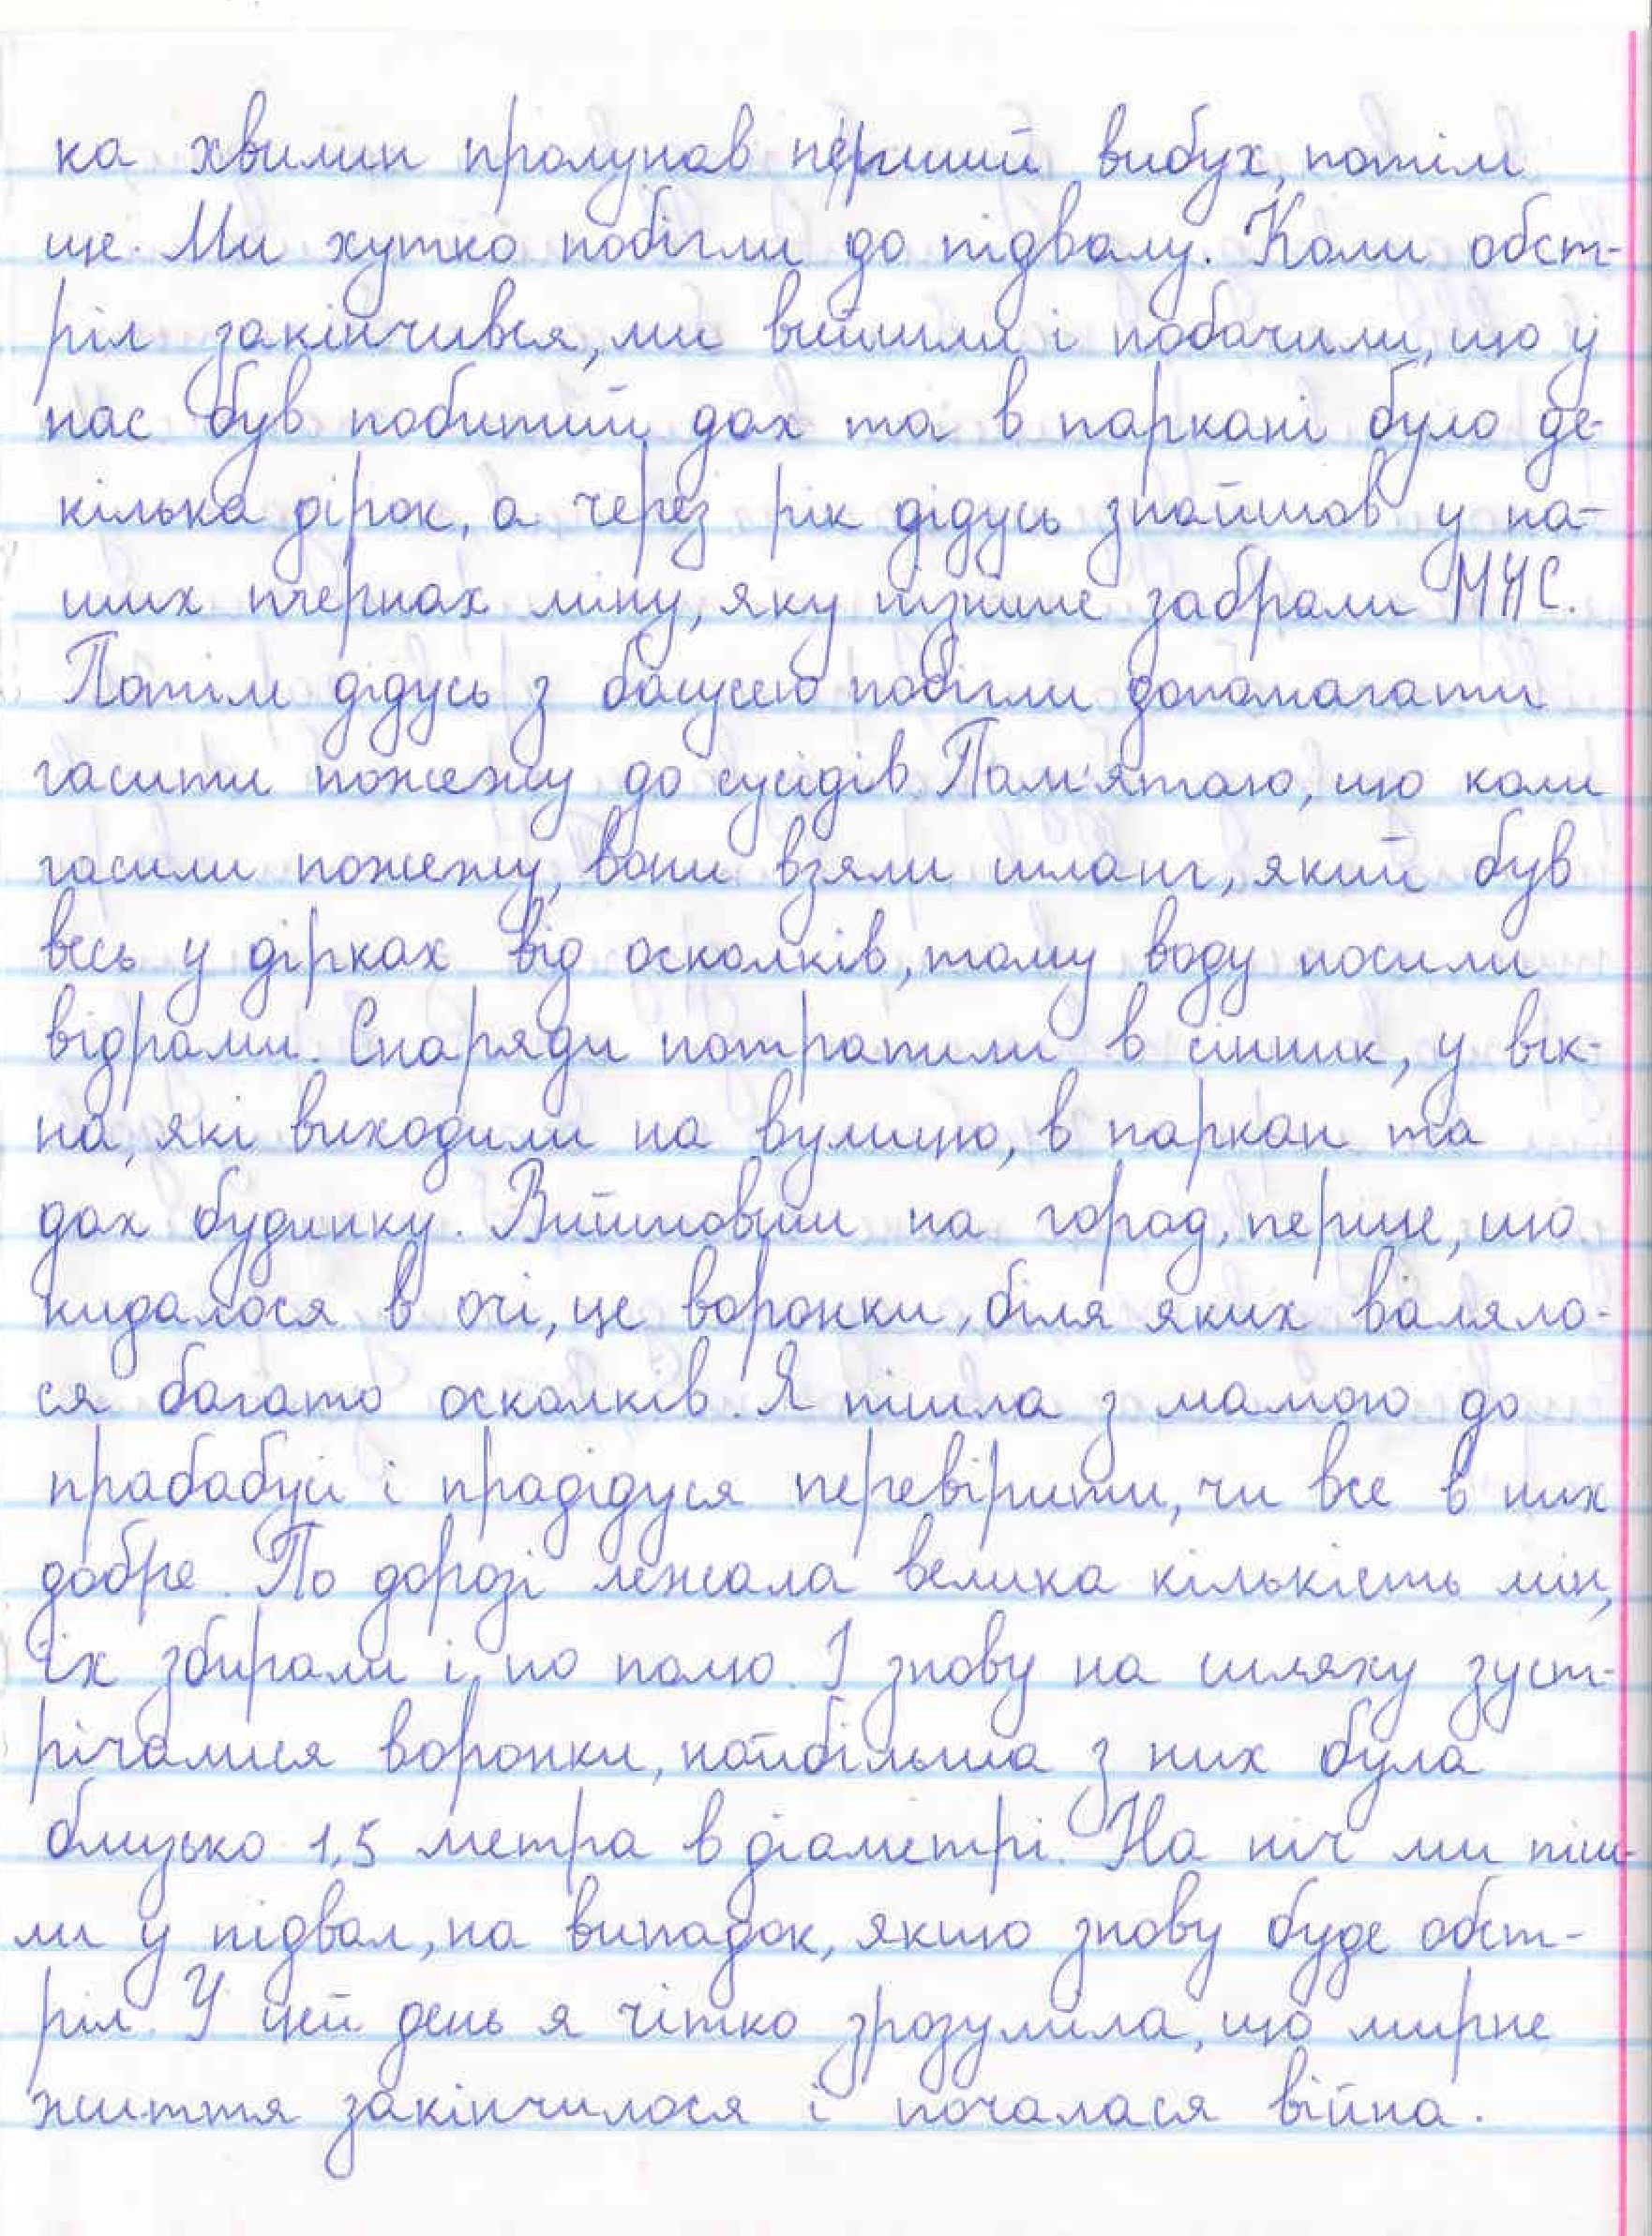 ка хвилин пролунав перший вибух, потім
ще. Ми хутко побігли до підвалу. Коли обст-
ріл закінчився, ми вийшли і побачили, що у
нас був побитий дах та в паркані було де-
кілька дірок, а через рік дідусь знайшов у на-
ших пчернах міну, яку пізніше забрали МНС.
Потім дідусь з бабусею побігли допомагати
гасити пожежу до сусідів. Пам'ятаю, що коли
гасили пожежу, вони взяли шланг, який був
весь у дірках від осколків, тому воду носили
відрами. Снаряди потрапили в сінник, у вік-
на, які виходили на вулицю, в паркан та
дах будинку. Вийшовши на город, перше, що
кидалося в очі, це воронки, біля яких валяло-
ся багато осколків. Я пішла з мамою до
прабабусі і прадідуся перевірити, чи все в них
добре. По дорозі лежала велика кількість мін,
їх збирали і по полю. І знову на шляху зуст-
річалися воронки, найбільша з них була
близько 1,5 метра в діаметрі. На ніч ми піш-
ли у підвал, на випадок, якщо знову буде обст-
ріл. У цей день я чітко зрозуміла, що мирне
життя закінчилося і почалася війна.